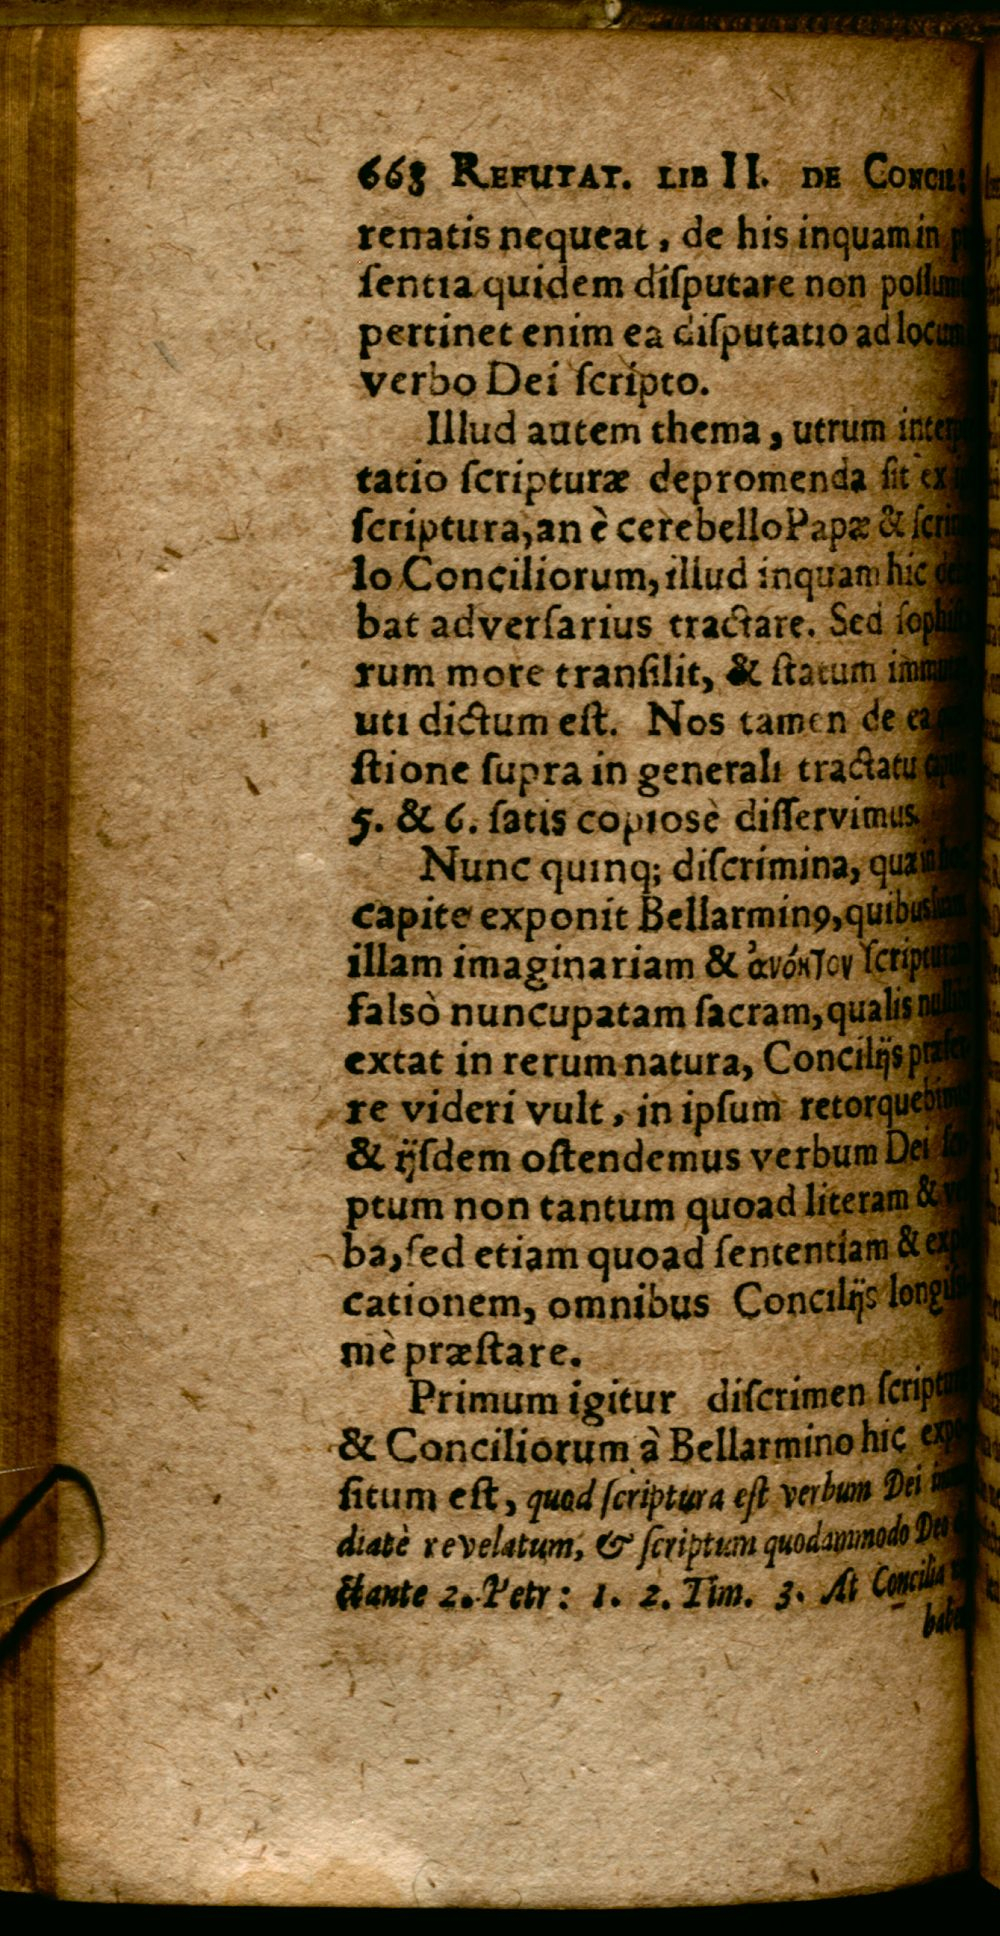 668 REFUTAT. LIB II. DE CONCIL:
renatis nequeat, de his inquam in
ſentia quidem diſputare non
pertinet enim ea diſputatio ad
verbo Dei ſcripto.
Illud autem thema, utrum
tatio ſcripturæ depromenda ſit ex
ſcriptura, an è cerebello Papæ &
lo Conciliorum, illud inquam hic
bat adverſarius tractare. Sed
rum more tranſilit, & ſtatum
uti dictum eſt. Nos tamen de ea
ſtione ſupra in generali tractatu
5. & 6. ſatis copiosè diſſervimus.
Nunc quinq; diſcrimina, quæ in
capite exponit Bellarminꝰ, quibus
illam imaginariam & ἀνόητον
falsò nuncupatam ſacram, qualis
extat in rerum natura, Concilijs
re videri vult, in ipſum
& ijſdem oſtendemus verbum Dei
ptum non tantum quoad literam &
ba, ſed etiam quoad ſententiam &
cationem, omnibus Concilijs
mè præſtare.
Primum igitur diſcrimen
& Conciliorum à Bellarmino hic
ſitum eſt, quod ſcriptura eſt verbum Dei
diatè revelatum, & ſcriptum quodammodo Deo
ctante 2. Petr: 1. 2. Tim. 3. At Concilia